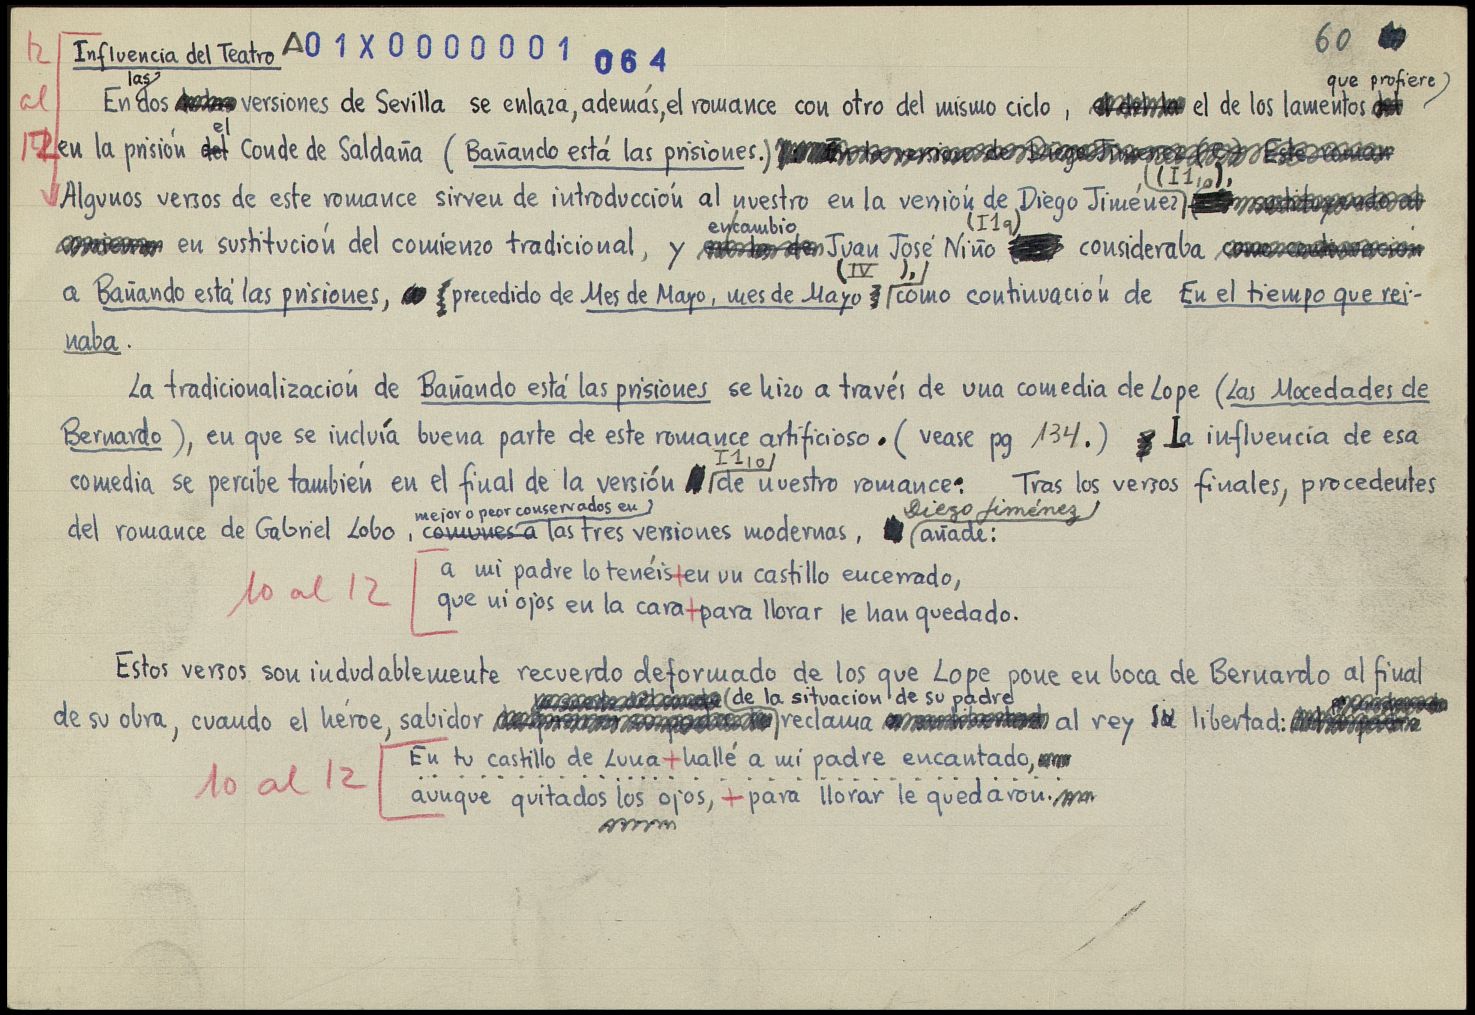 12 al 12
Influencia del Teatro A01X0000001 064 60
En las dos versiones de Sevilla se enlaza, además, el romance con otro del mismo ciclo, el de los lamentos que profiere
en la prisión el Conde de Saldaña (Bañando está las prisiones.)
Algunos versos de este romance sirven de introducción al nuestro en la versión de Diego Jiménez (I1,10),
en sustitución del comienzo tradicional, y en cambio Juan José Niño (I1,9) consideraba
a Bañando está las prisiones, precedido de Mes de Mayo, mes de Mayo (IV), como continuación de En el tiempo que rei-
naba.
La tradicionalización de Bañando está las prisiones se hizo a través de una comedia de Lope (Las Mocedades de
Bernardo), en que se incluía buena parte de este romance artificioso. (vease pg 134.) La influencia de esa
comedia se percibe también en el final de la versión I1,10 de nuestro romance. Tras los versos finales, procedentes
del romance de Gabriel Lobo, mejor o peor conservados en las tres versiones modernas, Diego Jiménez añade:
10 al 12
a mi padre lo tenéis + en un castillo encerrado,
que ni ojos en la cara + para llorar le han quedado.
Estos versos son indudablemente recuerdo deformado de los que Lope pone en boca de Bernardo al final
de su obra, cuando el héroe, sabidor de la situación de su padre reclama al rey su libertad:
10 al 12
En tu castillo de Luna + hallé a mi padre encantado,
. . . . . . . . . . . . . . . . . . . . . . . . . . . . . .
aunque quitados los ojos, + para llorar le quedaron.